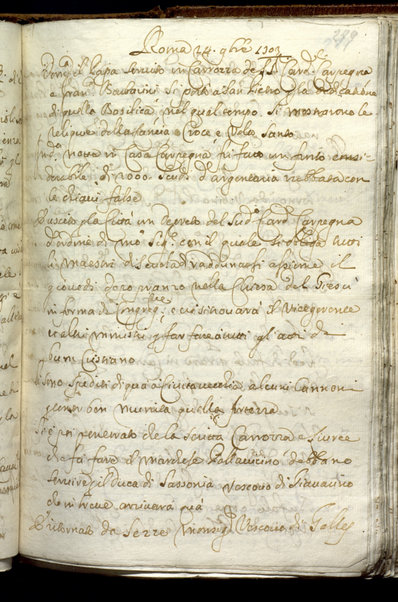 289
Roma 24. 9bre 1703
Dom.ca il Papa servito in Carrozza da SS.ri Card.li Carpegna
e Fran. Barberini si portò a San Pietro p la dedicazione
di quella Basilica nel qual tempo si mostrarono le
reliquie della lancia Croce e Volto Santo
nove in Casa Carpegna fu fatto un furto consi-
derabile di 2000. Scudi d'argenteria rubbata con
le chiavi false
Uscito p la Città un Decreto del Sud.o Card. Carpegna
d'ordine di N.ro Sig.re con il quale si obliga tutti
li Maestri di Scuola di radunarsi assieme il
giovedi dopo pranzo nella Chiesa del Giesù
in forma di Congreg.ne e vi si trovarà il Vicegerente
et altri ministri p far fare a tutti gl'atti de
buon Cristiano
Si sono spediti di qua a Civita vecchia alcuni Cannoni
p ben munita quella fortezza
Si è poi penetrato che la Carrozza e livree
che fa fare il Marchese Pallavicino debbano
servire p il Duca di Sassonia Vescovo di Giavarino
che in breve arrivarà quà
È ritornato da Monsig.r Vescovo di